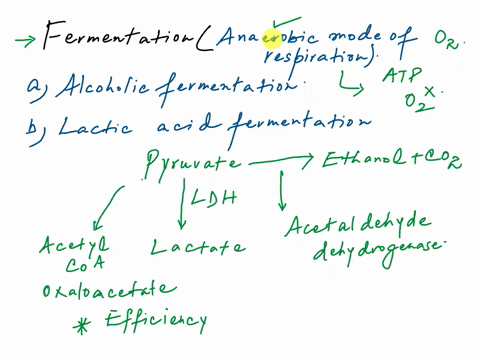 → Fermentation (Anaerobic mode of O2.
respiration).
ATP
a) Alcoholic fermentation.
O2 x.
b) Lactic acid fermentation
Pyruvate → Ethanol + CO2
LDH
Acetaldehyde
dehydrogenase.
Acetyl CoA
Lactate
Oxaloacetate
* Efficiency